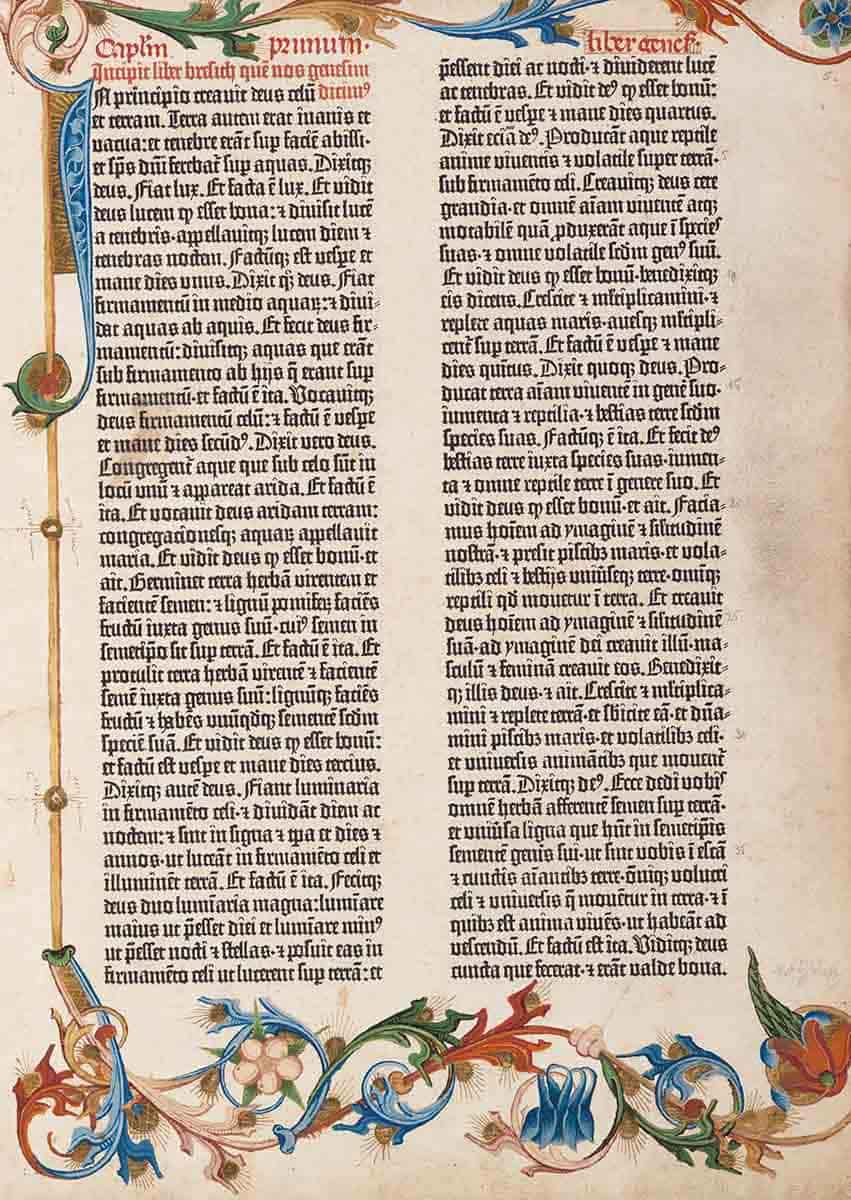 Caplm primum.
liber genes.
Incipit liber bresich quē nos genesim
dicim⁹
In principio creavit deus celū
et terram. Terra autem erat inanis et
vacua: et tenebre erāt sup faciē abissi:
et sp̄s dn̄i ferebat̄ sup aquas. Dixitqꝫ
deus. Fiat lux. Et facta ē lux. Et vidit
deus lucem ꝙ esset bona: ⁊ divisit lucē
a tenebris·appellavitqꝫ lucem diem ⁊
tenebras noctem. Factūqꝫ est vespe et
mane dies unus. Dixit qꝫ deus. Fiat
firmamentū in medio aquaꝝ: ⁊ divi⸗
dat aquas ab aquis. Et fecit deus fir⸗
mamentū: divisitqꝫ aquas que erāt
sub firmamento ab hijs q̄ erant sup
firmamentū·et factū ē ita. Vocavitqꝫ
deus firmamentū celum: ⁊ factū ē vespe
et mane dies secūd⁹. Dixit vero deus.
Congregent̄ aque que sub celo sūt in
locū unū ⁊ appareat arida. Et factū ē
ita. Et vocavit deus aridam terram:
congregacionesqꝫ aquaꝝ appellavit
maria. Et vidit deus ꝙ esset bonū·et
ait. Germinet terra herbā virentem et
facientē semen: ⁊ lignū pomifeꝝ faciēs
fructū iuxta genus suū·cui⁹ semen in
semetip̄o sit sup terrā. Et factū ē ita. Et
protulit terra herbā virentē ⁊ facientē
semē iuxta genus suū: lignūqꝫ faciēs
fructū ⁊ habēs unūqdqꝫ sementē scdm
speciē suā. Et vidit deus ꝙ esset bonū:
et factū est vespe et mane dies tercius.
Dixitqꝫ autē deus. Fiant luminaria
in firmamēto celi·⁊ dividāt diem ac
noctem: ⁊ sint in signa ⁊ tp̄a et dies ⁊
annos·ut luceāt in firmamēto celi et
illuminēt terrā. Et factū ē ita. Fecitqꝫ
deus duo lumīaria magna: lumīare
maius ut p̄esset diei et lumīare min⁹
ut p̄esset nocti ⁊ stellas·⁊ posuit eas in
firmamēto celi ut lucerent sup terrā: et
p̄essent diei ac nocti·⁊ dividerent lucē
ac tenebras. Et vidit de⁹ ꝙ esset bonū:
et factū ē vespe ⁊ mane dies quartus.
Dixit eciā de⁹. Producāt aque reptile
anime viventis ⁊ volatile super terrā·
sub firmamēto celi. Creavitqꝫ deus cete
grandia·et omnē aīam viventē atqꝫ
motabilē quā ꝓduxerāt aque ī species
suas·⁊ omne volatile scdm gen⁹ suū.
Et vidit deus ꝙ esset bonū·benedixitqꝫ
eis dicens. Crescite ⁊ mltiplicamini·⁊
replete aquas maris·avesqꝫ mltipli⸗
cent̄ sup terrā. Et factū ē vespe ⁊ mane
dies quītus. Dixit quoqꝫ deus. Pro⸗
ducat terra aīam viventē in genē suo·
iumenta ⁊ reptilia·⁊ bestias terre scdm
species suas. Factūqꝫ ē ita. Et fecit de⁹
bestias terre iuxta species suas·iumen⸗
ta ⁊ omne reptile terre ī genere suo. Et
vidit deus ꝙ esset bonū·et ait. Facia⸗
mus hoīem ad ymaginē ⁊ silitudinē
nostrā·⁊ presit piscibꝫ maris·et vola⸗
tilibꝫ celi ⁊ bestijs univ̄seqꝫ terre·omīqꝫ
reptili qd movetur ī terra. Et creavit
deus hoīem ad ymaginē ⁊ silitudinē
suā·ad ymaginē dei creavit illū·ma⸗
sculū ⁊ feminā creavit eos. Benedixit⸗
qꝫ illis deus·⁊ ait. Crescite ⁊ mltiplica⸗
mini ⁊ replete terrā·et sbicite eā·et dn̄a⸗
mini piscibꝫ maris·et volatilibꝫ celi·
et universis animātibꝫ que movent̄
sup terrā. Dixitqꝫ de⁹. Ecce dedi vobis
omnē herbā afferentē semen sup terrā·
et univ̄sa ligna que hn̄t in semetip̄is
sementē genis sui·ut sint vobis ī escā
⁊ cunctis aīantibꝫ terre·om̄iqꝫ volucri
celi ⁊ universis q̄ movētur in terra·⁊ ī
quibꝫ est anima vivēs·ut habeāt ad
vescendū. Et factū est ita. Viditqꝫ deus
cuncta que fecerat·⁊ erāt valde bona.